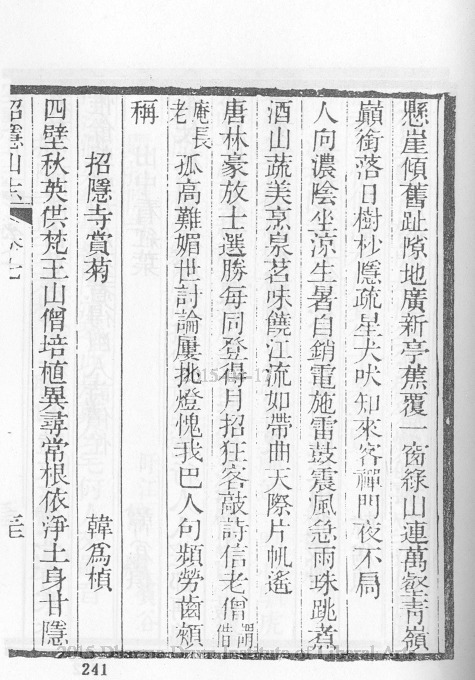 懸崖傾舊趾隙地廣新亭蕉覆一窗綠山連萬壑青嶺
巔銜落日樹杪隱疏星犬吠知來客禪門夜不扃
人向濃陰坐涼生暑自銷電施雷鼓震風急雨珠跳煮
酒山蔬美烹泉茗味饒江流如帶曲天際片帆遙
唐林豪放士選勝每同登得月招狂客敲詩信老僧謂借
庵長老孤高難媚世討論屢挑燈愧我巴人句頻勞齒頰
稱
招隱寺賞菊 韓爲楨
四壁秋英供梵王山僧培植異尋常根依淨土身甘隱
招隱山志 卷七
241
2015 Dharma Drum Institute of Liberal Arts